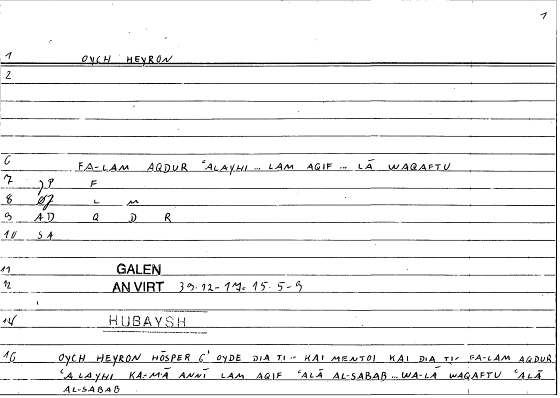 1
1 OYCH HEYRON
2
6 FA-LAM AQDUR ʿALAYHI ... LAM AQIF ... LĀ WAQAFTU
7 JP F
8 L M
9 AD Q D R
10 SA
11 GALEN
12 AN VIRT 39.12-17. 15.5-9
14 HUBAYSH
16 OYCH HEYRON HŌSPER G' OYDE DIA TI .. KAI MENTOI KAI DIA TI .. FA-LAM AQDUR
ʿALAYHI KA-MĀ ANNĪ LAM AQIF ʿALĀ AL-SABAB ... WA-LĀ WAQAFTU ʿALĀ
AL-SABAB